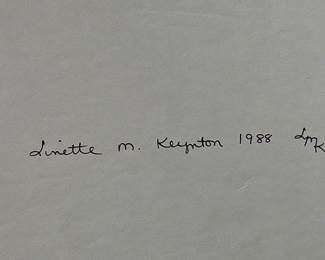 Linette M. Keynton 1988 LMK